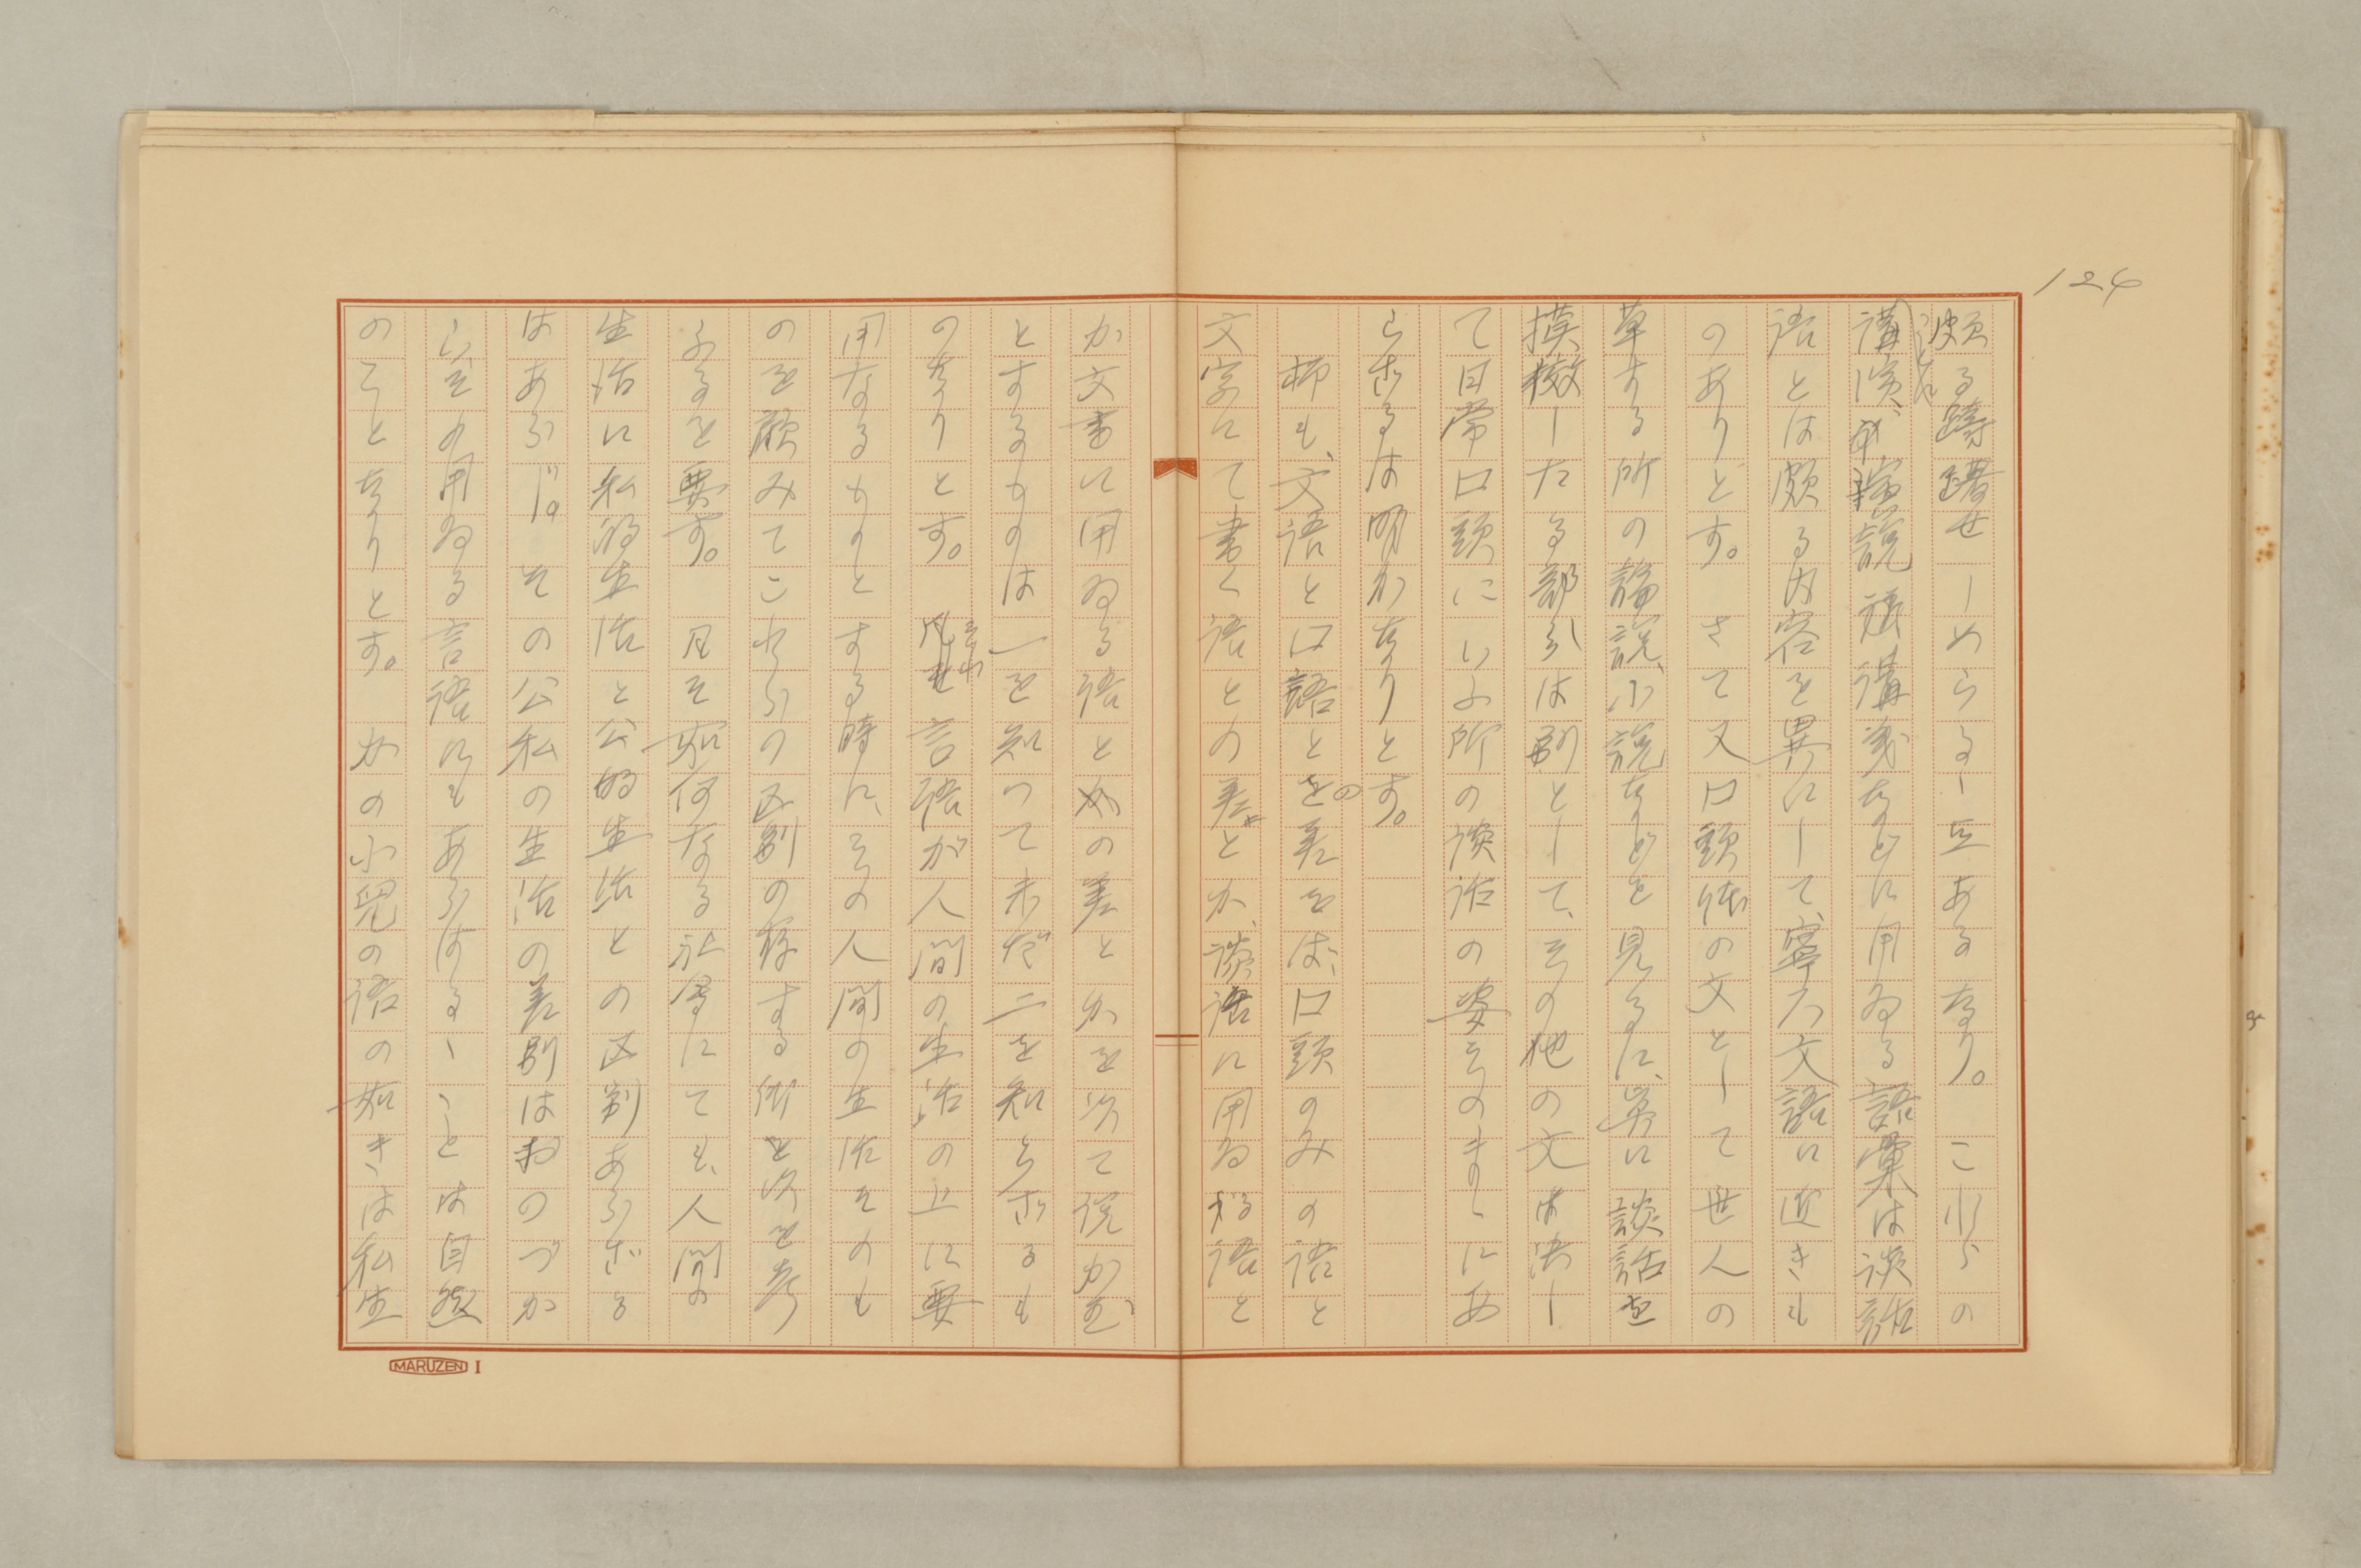 124
頗る躊躇せしめらるゝ点あるなり。これらの
講演、演説、講義などに用ゐる語彙は談話
語とは頗る内容を異にして、寧ろ文語に近きも
のありとす。さて又口語体の文として世人の
草する所の論説、小説などを見るに、単に談話を
摸擬したる部分は別として、その他の文は決し
て日常口頭にいふ所の談話の姿そのまゝにあ
らざるは明かなりとす。
抑も、文語と口語との差をば、口頭のみの語と
文字にて書く語との差とか、談話に用ゐる語と
か文書に用ゐる語との差とかを以て説かむ
とするものは一を知つて未だ二を知らざるも
のなりとす。凡そ言語が人間の生活の上に要
用なるものとする時に、その人間の生活そのも
のを顧みてこれらの区別の存する所以を考
ふるを要す。凡そ如何なる社会にても、人間の
生活に私的生活と公的生活との区別あらざる
はあらじ。その公私の生活の差別はおのづか
らその用ゐる言語にもあらはるゝことは自然
のことなりとす。かの小児の語の如きは私生
MARUZEN I